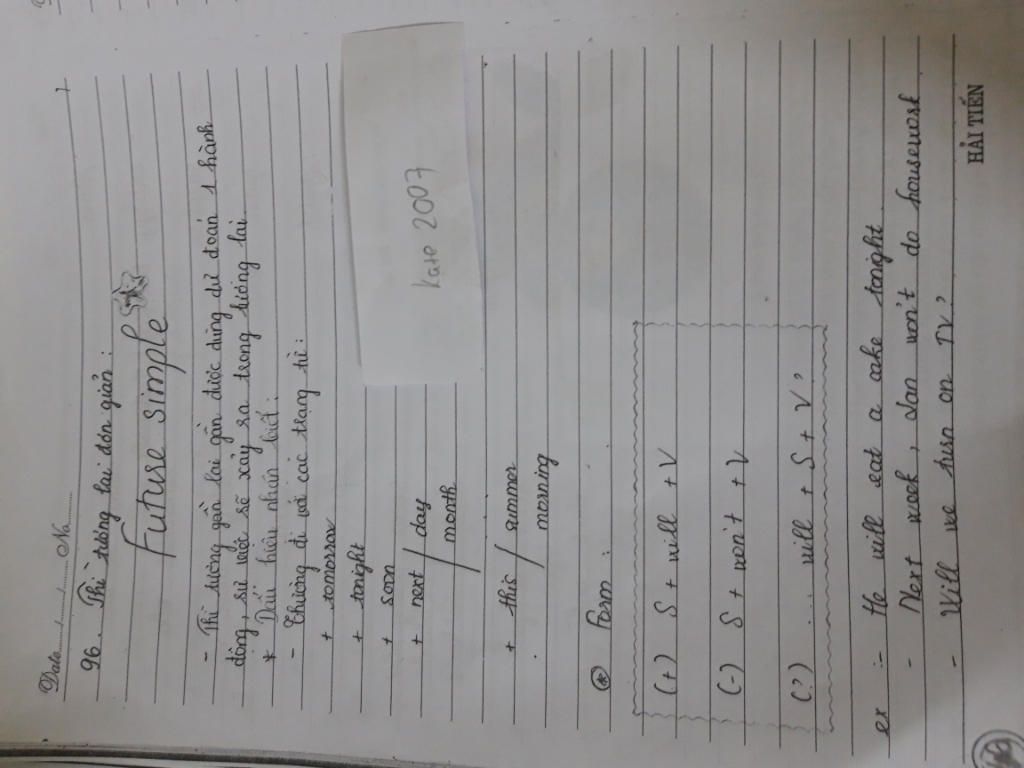 Date ......./......./....... No. .......
96. Thì tương lai đơn giản:
Future simple
- Thì tương gần lai gần được dùng dự đoán 1 hành
động, sự việc sẽ xảy ra trong tương lai
* Dấu hiệu nhận biết:
- Thường đi với các trạng từ:
+ tomorrow
+ tonight
+ soon
+ next / day
month
+ this / summer
morning
kate 2007
* Form:
(+) S + will + V
(-) S + won't + V
(?) ... will + S + V?
ex :- He will eat a cake tonight
- Next week, Lan won't do housework
- Will we turn on TV?
HẢI TIẾN